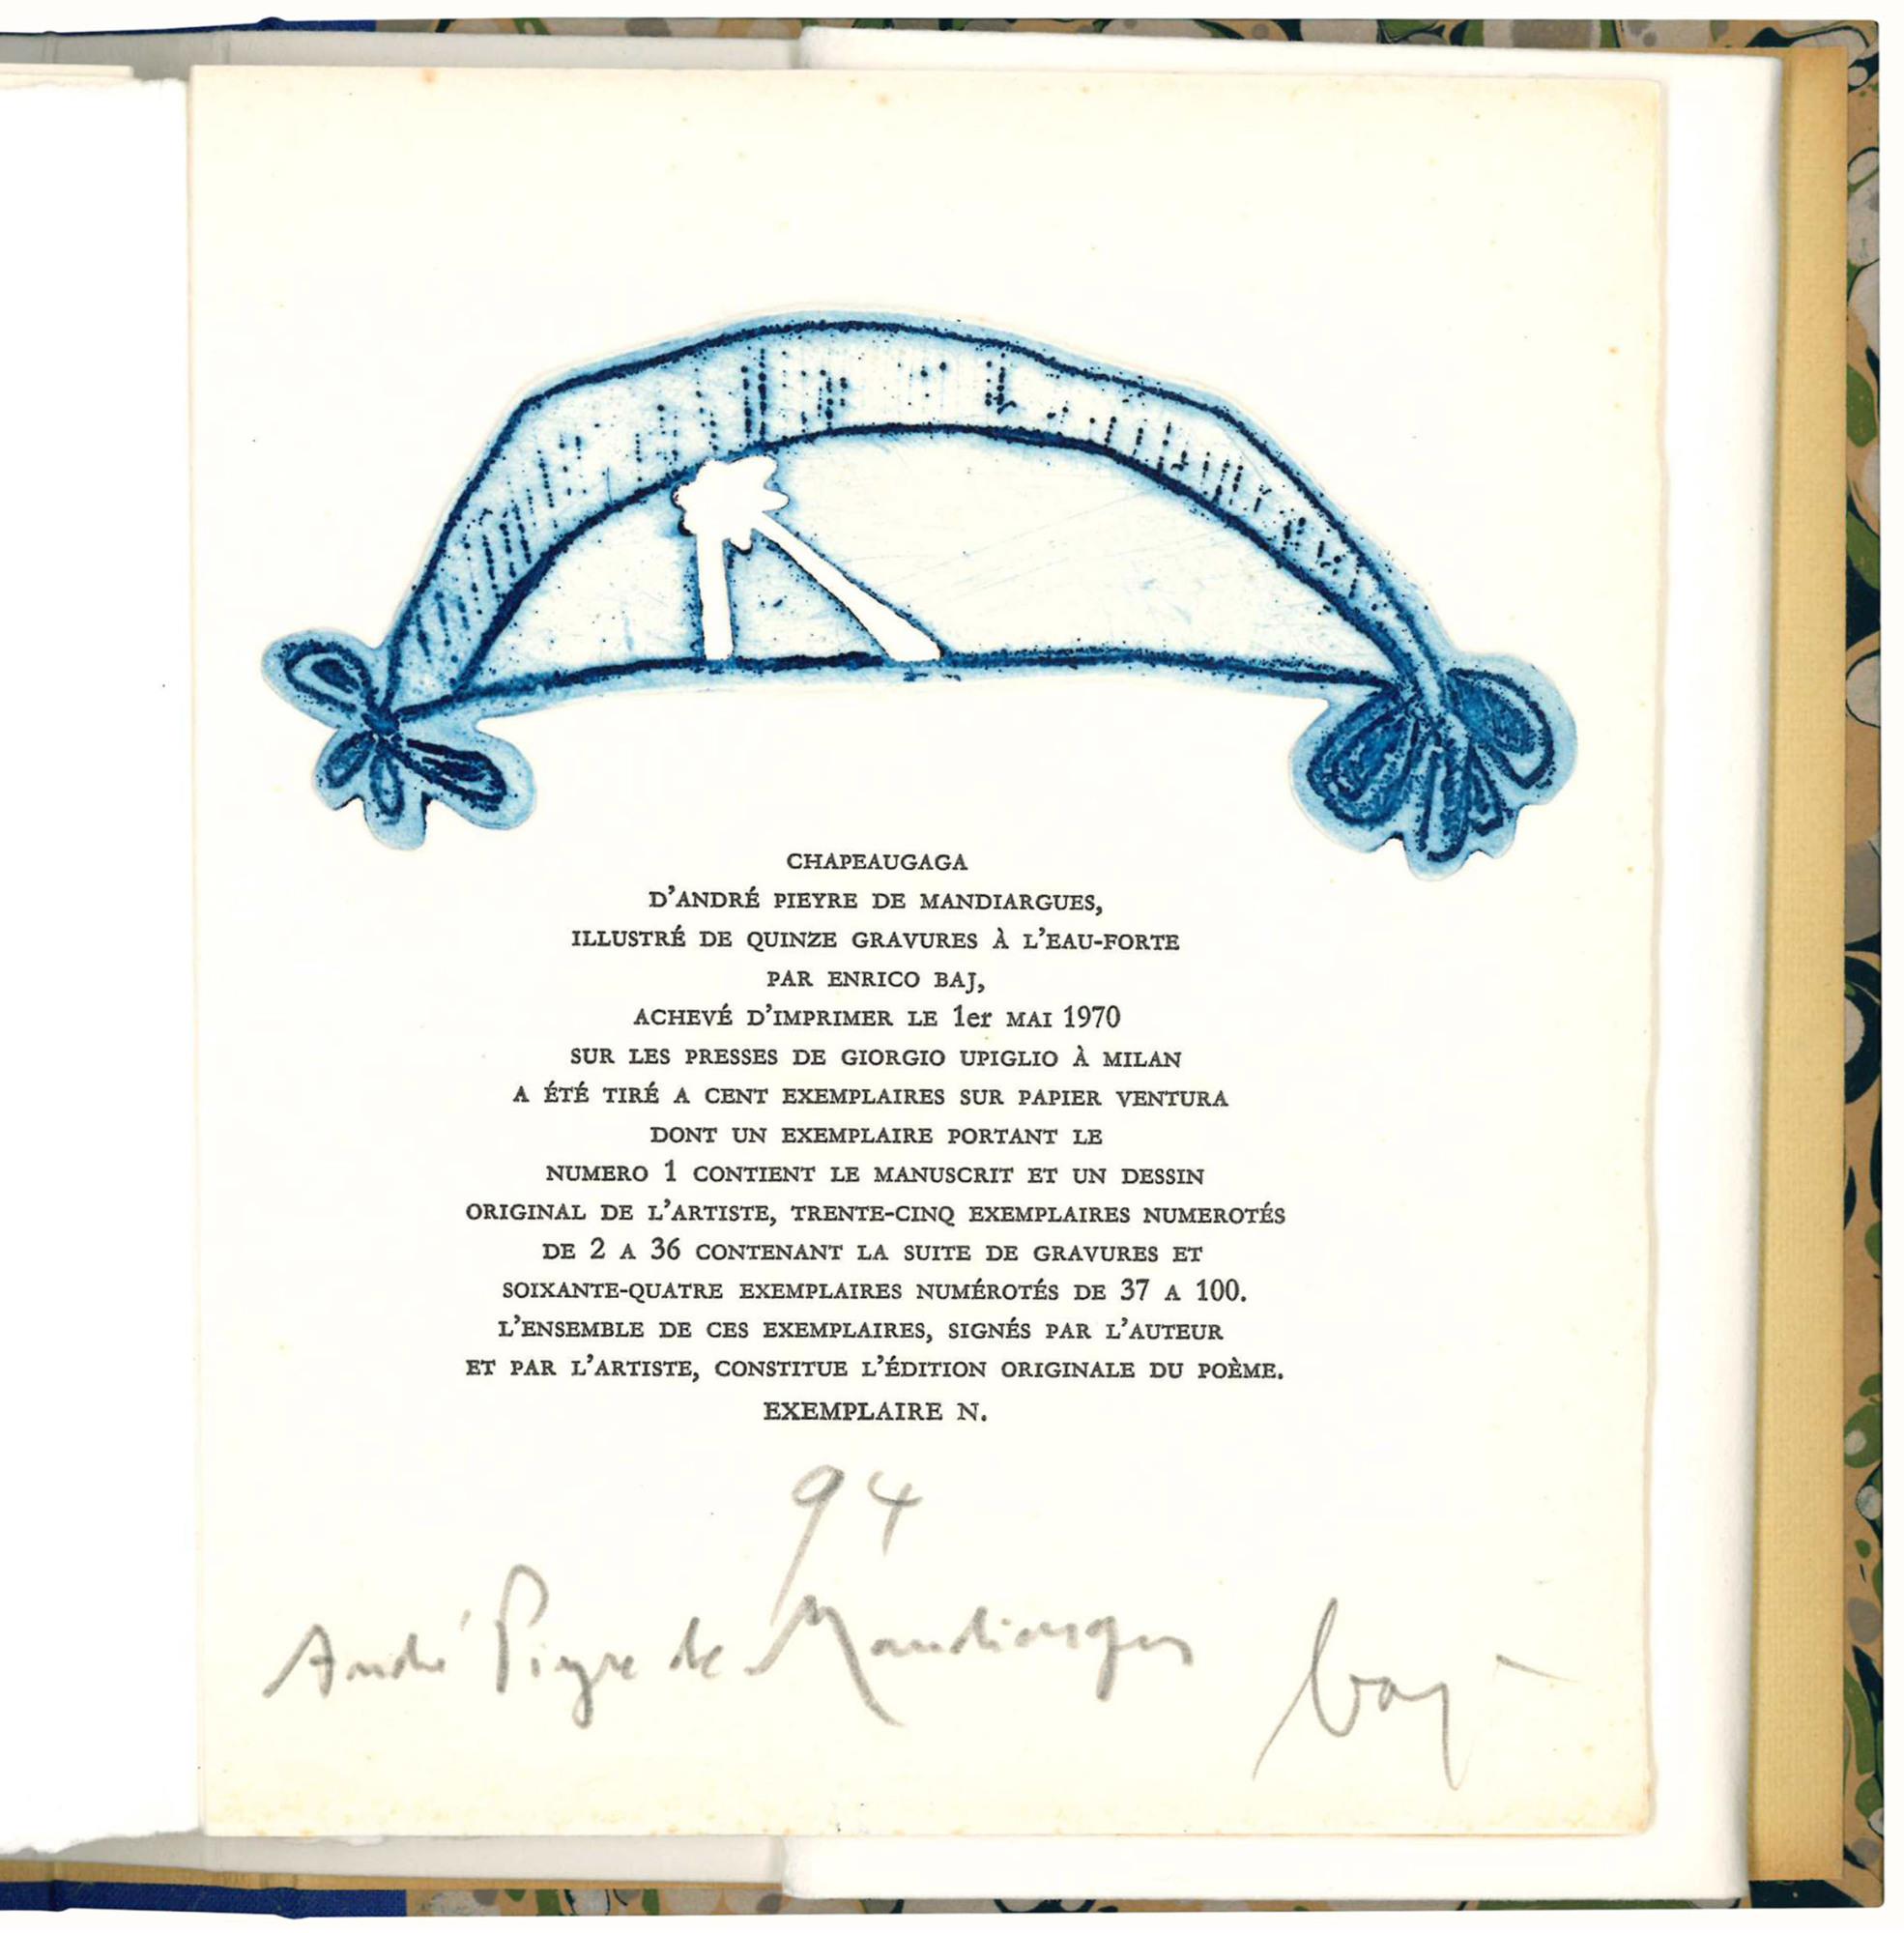 CHAPEAUGAGA
D'ANDRÉ PIEYRE DE MANDIARGUES,
ILLUSTRÉ DE QUINZE GRAVURES À L'EAU-FORTE
PAR ENRICO BAJ,
ACHEVÉ D'IMPRIMER LE 1er MAI 1970
SUR LES PRESSES DE GIORGIO UPIGLIO À MILAN
A ÉTÉ TIRÉ A CENT EXEMPLAIRES SUR PAPIER VENTURA
DONT UN EXEMPLAIRE PORTANT LE
NUMERO 1 CONTIENT LE MANUSCRIT ET UN DESSIN
ORIGINAL DE L'ARTISTE, TRENTE-CINQ EXEMPLAIRES NUMEROTÉS
DE 2 A 36 CONTENANT LA SUITE DE GRAVURES ET
SOIXANTE-QUATRE EXEMPLAIRES NUMÉROTÉS DE 37 A 100.
L'ENSEMBLE DE CES EXEMPLAIRES, SIGNÉS PAR L'AUTEUR
ET PAR L'ARTISTE, CONSTITUE L'ÉDITION ORIGINALE DU POÈME.
EXEMPLAIRE N.
94
André Pieyre de Mandiargues baj